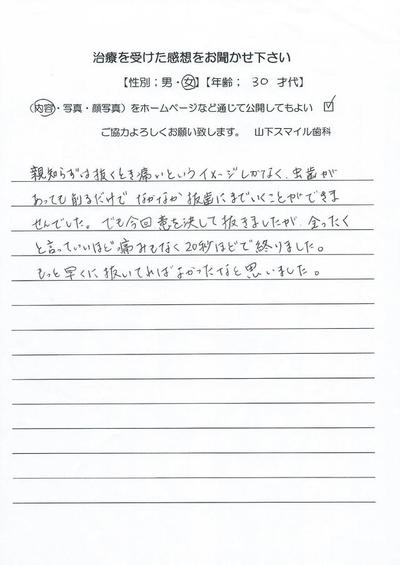 治療を受けた感想をお聞かせ下さい
【性別；男・女】【年齢；30才代】
（内容・写真・顔写真）をホームページなど通じて公開してもよい ☑
ご協力よろしくお願い致します。 山下スマイル歯科
親知らずは抜くとき痛いというイメージしかなく、虫歯が
あっても削るだけで なかなか抜歯にまでいくことができま
せんでした。でも今回意を決して抜きましたが、全ったく
と言っていいほど痛みもなく20秒ほどで終りました。
もっと早くに抜いてればよかったなと思いました。